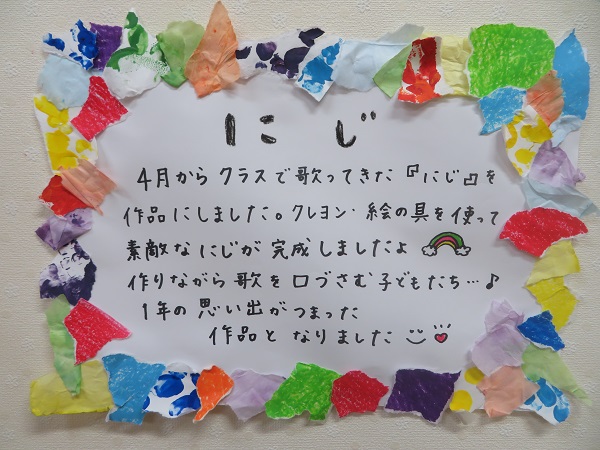 にじ
4月からクラスで歌ってきた『にじ』を
作品にしました。クレヨン・絵の具を使って
素敵なにじが完成しましたよ
作りながら歌を口づさむ子どもたち…♪
1年の思い出がつまった
作品となりました